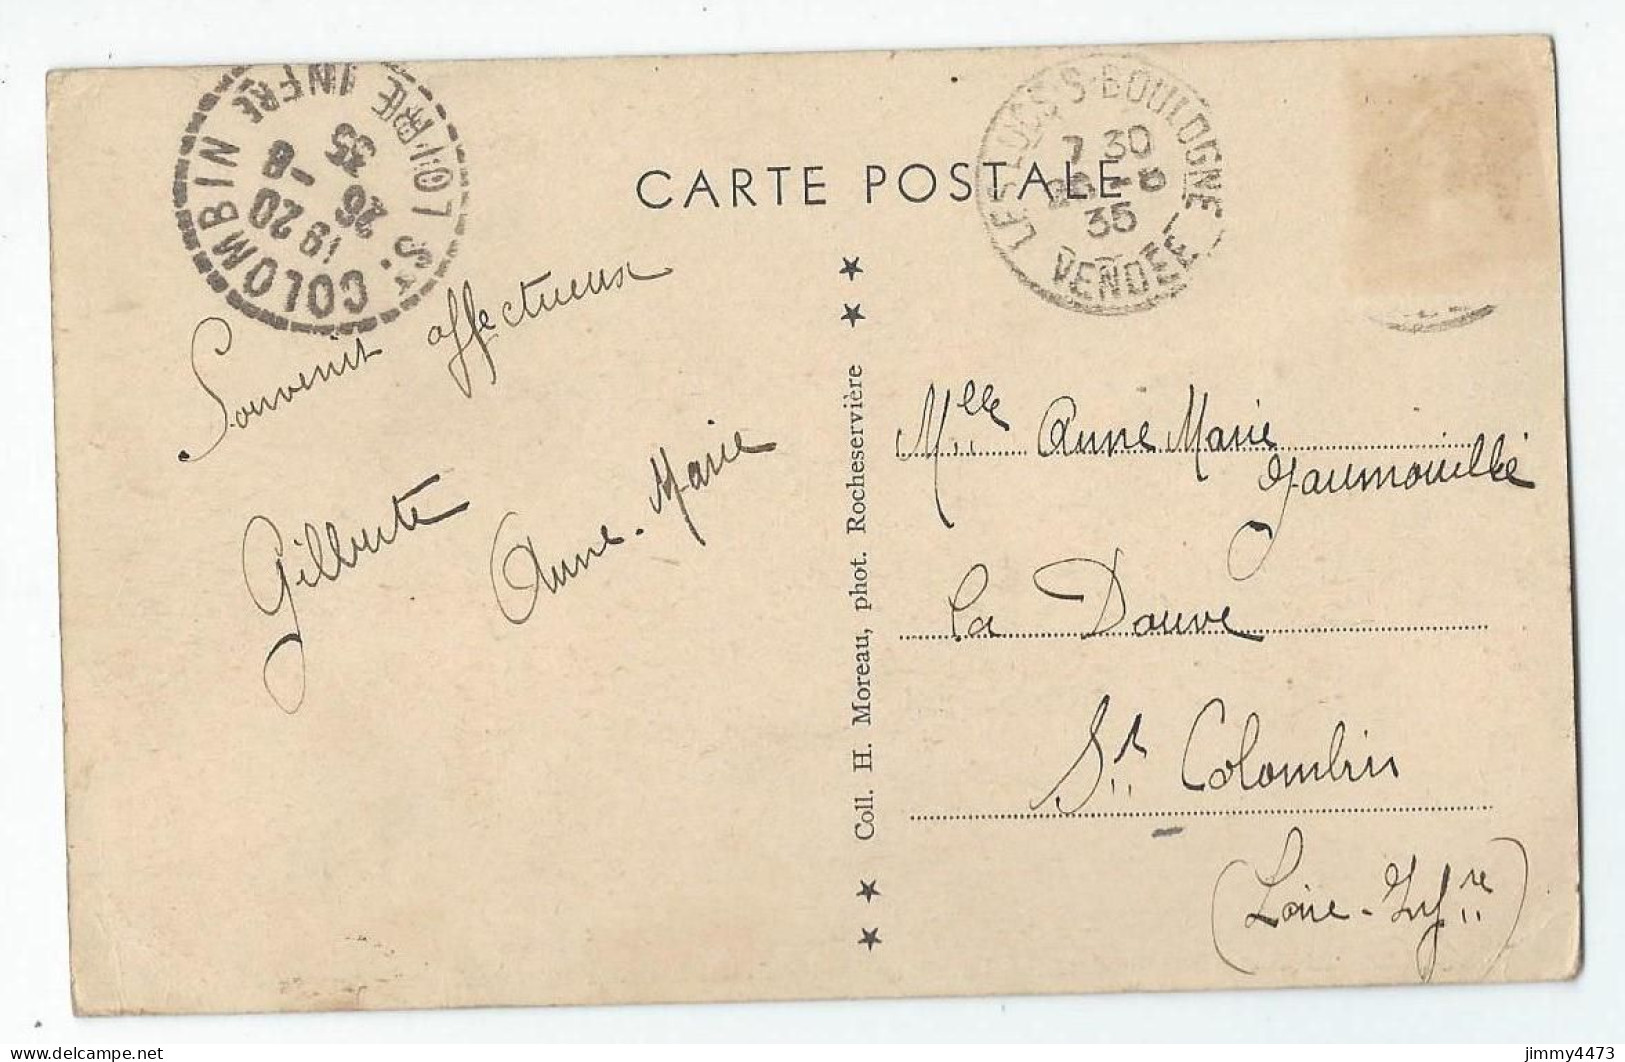 St COLOMBIN
LOIRE INFRE
19 20
26 - 8
35
LES LUCS-S-BOULOGNE
7 30
26 - 8
35
VENDÉE
CARTE POSTALE
Souvenir affectueux
Gilberte
Anne-Marie
Coll. H. Moreau, phot. Rocheservière
Mlle Anne Marie
Jaumouillé
La Douve
St Colombin
(Loire-Infre)
jimmy4473
delcampe.net